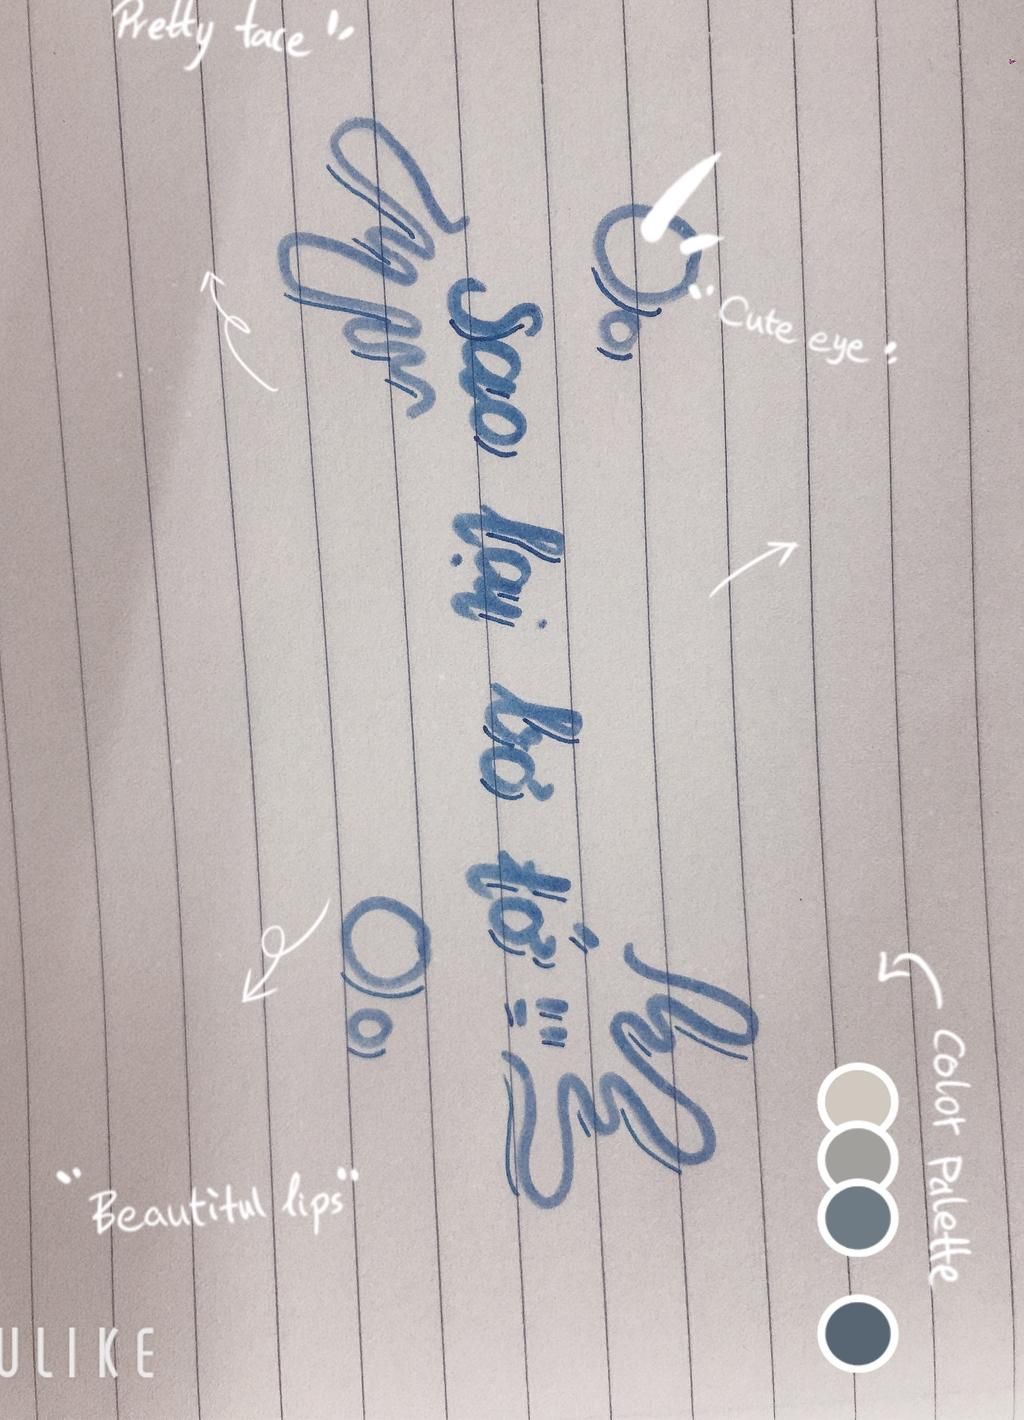 Pretty face
Sao lại bỏ tớ!!!
"Cute eye"
Color Palette
"Beautiful lips"
ULIKE